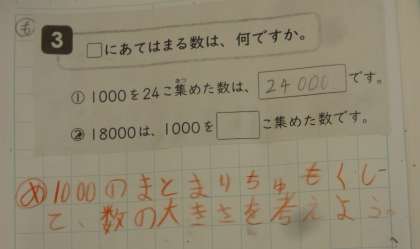 も
3 □にあてはまる数は、何ですか。
① 1000を24こ集めた数は、24000です。
② 18000は、1000を□こ集めた数です。
め 1000のまとまりちゅもくし
て、数の大きさを考えよう。